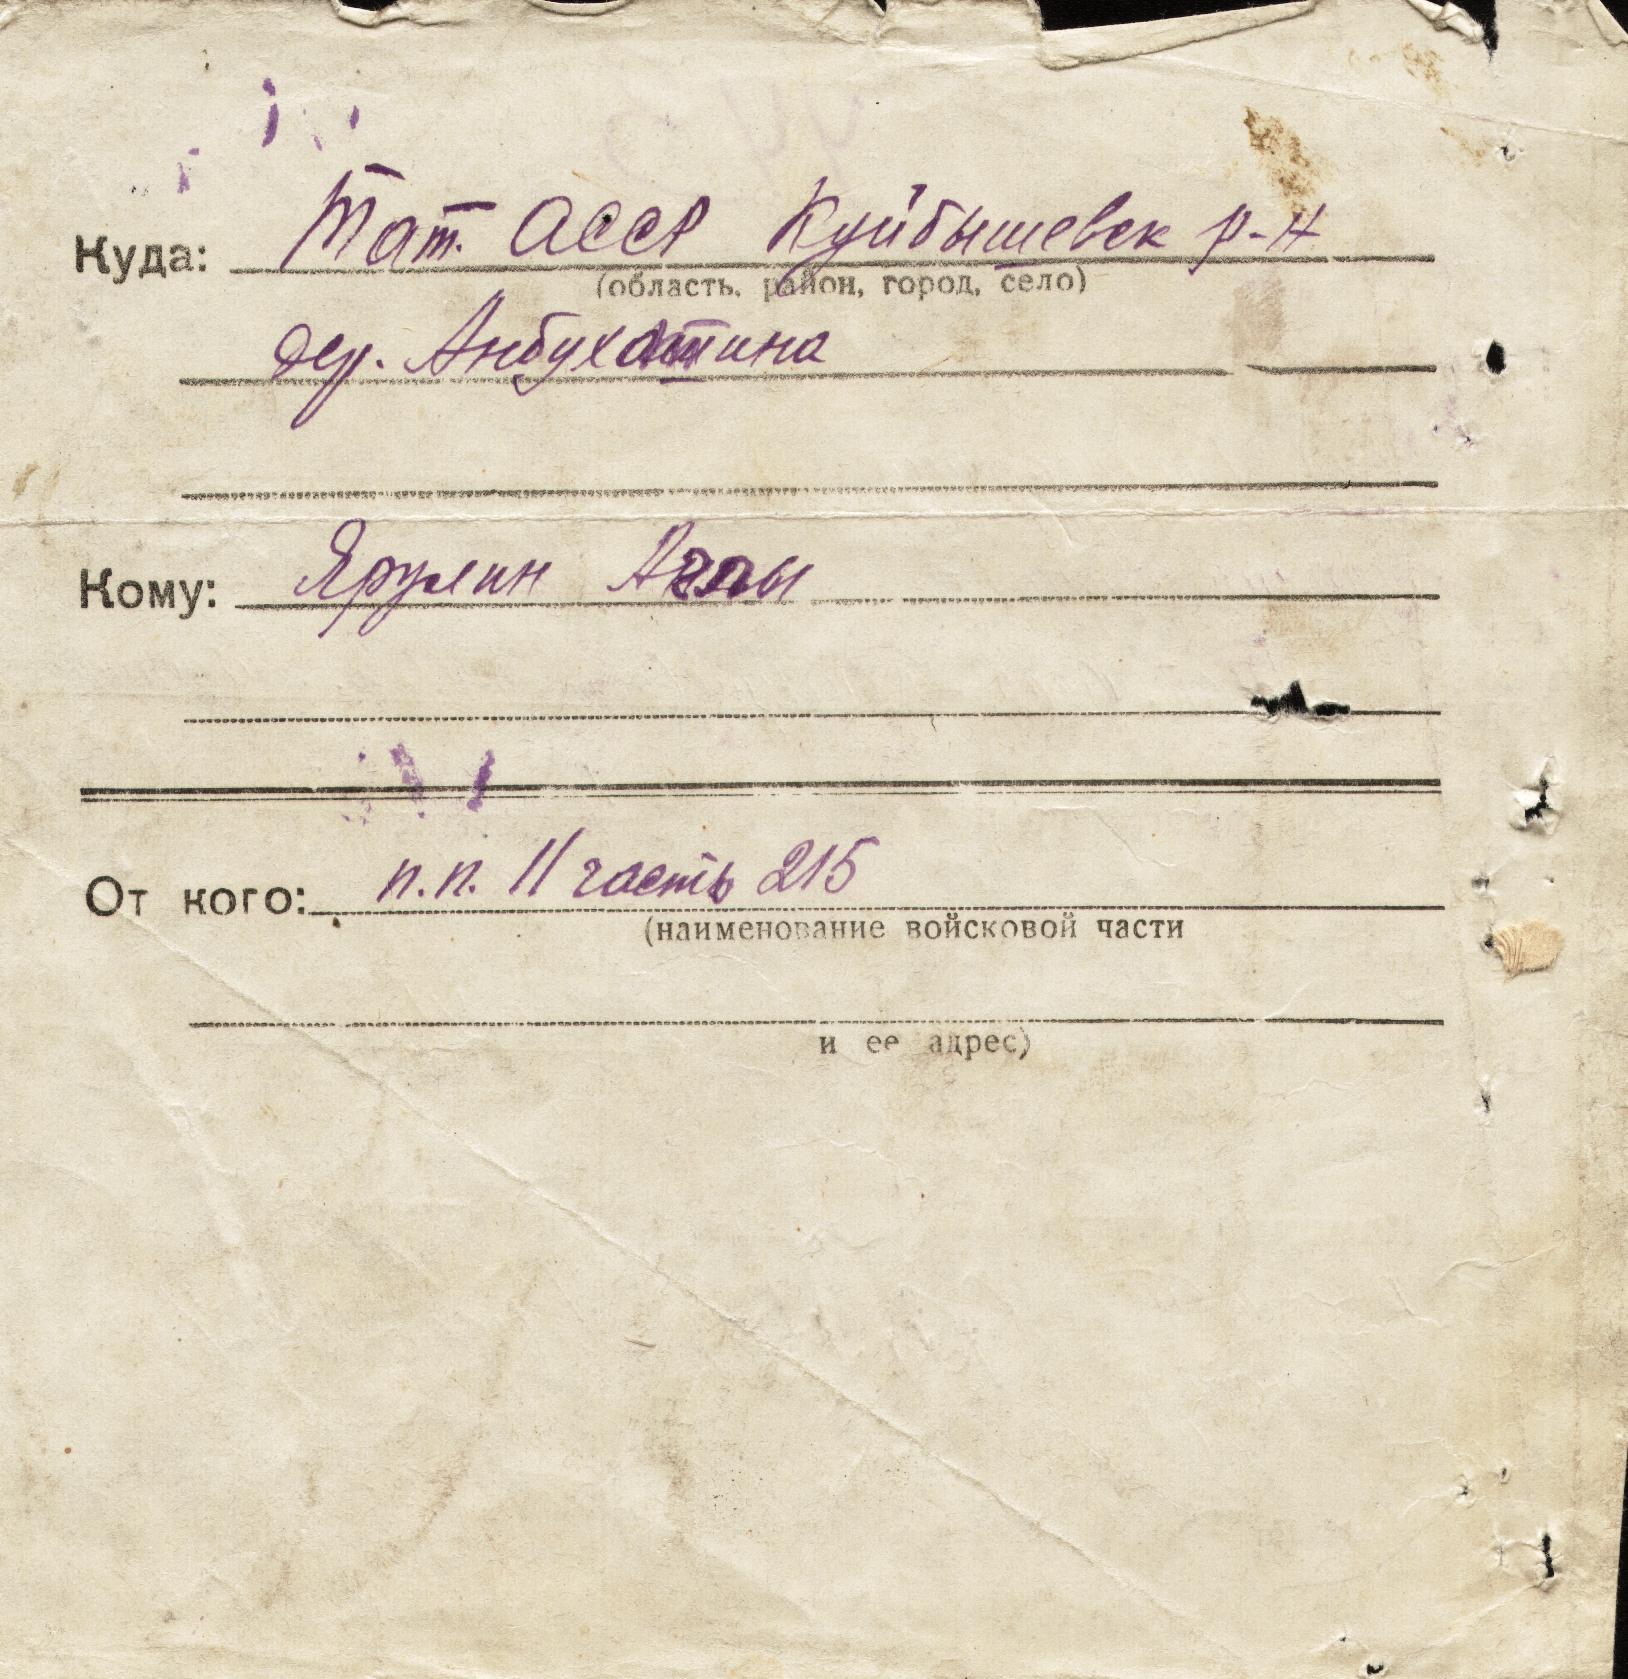 Куда: Тат. АССР Куйбышевск р-н
(область, район, город, село)
дер. Анбухатина
Кому: Ярулин
От кого: п.п. 11 часть 215
(наименование войсковой части
и ее адрес)